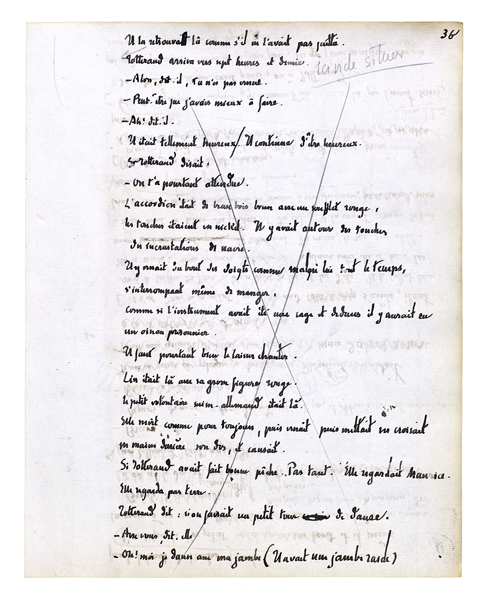 36
Il la retrouvait là comme s'il ne l'avait pas quitté.
Rotterand arriva vers sept heures et demie.
- Alors, dit-il, tu n'es pas venue.
- Peut-être que j'avais mieux à faire.
- Ah! dit-il.
Il était tellement heureux / Il continua d'être heureux.
Et Rotterand disait:
- On t'a pourtant attendue.
L'accordion était de beau bois brun avec un soufflet rouge,
les touches étaient en nickel. Il y avait autour des touches
des incrustations de nacre.
Il y posait du bout des doigts comme malgré lui tout le temps,
s'interrompant même de manger,
comme si l'instrument avait été une cage et dedans il y aurait eu
un oiseau prisonnier.
Il faut pourtant bien le laisser chanter.
était là avec sa grosse figure rouge.
le petit volontaire suisse-allemand était là.
Elle comme pour toujours, puis venait puis mettait en croisant
ses mains derrière son dos, et causait.
Si Rotterand avait fait bonne pêche. Pas tant. Elle regardait Maurice.
Elle regarda par terre.
Rotterand dit: si on faisait un petit tour de danse.
- Avec vous, dit-elle
- Oh! moi je danse avec ma jambe (Il avait une jambe raide)